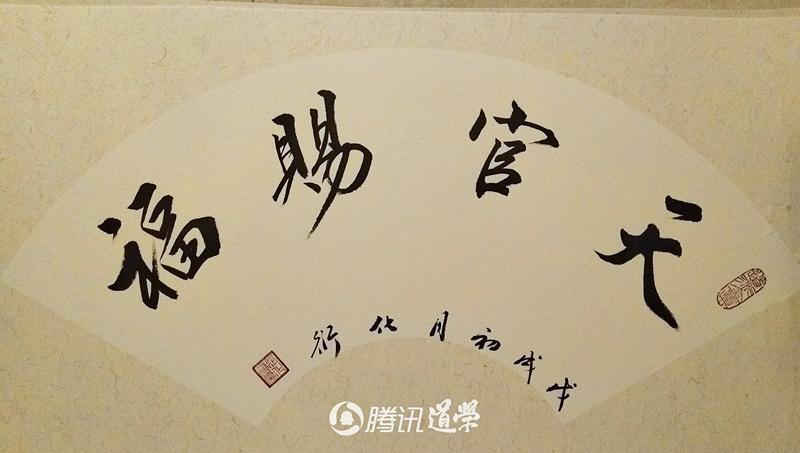 天官賜福
戊戌初月化衍
腾讯道學